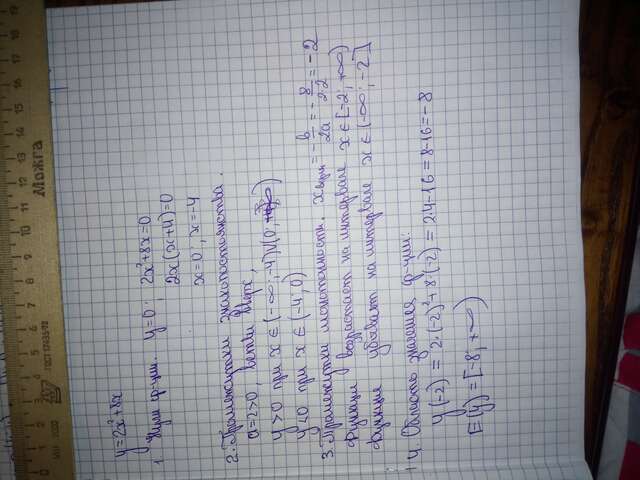 y=2x²+8x
1. Нули ф-ции. y=0; 2x²+8x=0
2x(x+4)=0
x=0; x=-4
2. Промежутки знакопостоянства.
a=2>0, ветви вверх,
y>0 при x∈(-∞;-4)∪(0;+∞)
y<0 при x∈(-4;0)
3. Промежутки монотонности xверш = -b/2a = -8/2·2 = -2
функция возрастает на интервале x∈[-2;+∞)
функция убывает на интервале x∈(-∞;-2]
4. Область значения ф-ции:
y(-2) = 2·(-2)²+8(-2) = 24-16=8-16=-8
E(y) = [-8;+∞)
Можга
0 1 2 3 4 5 6 7 8 9 10 11 12 13 14 15 16 17
ГОСТ 17435-72